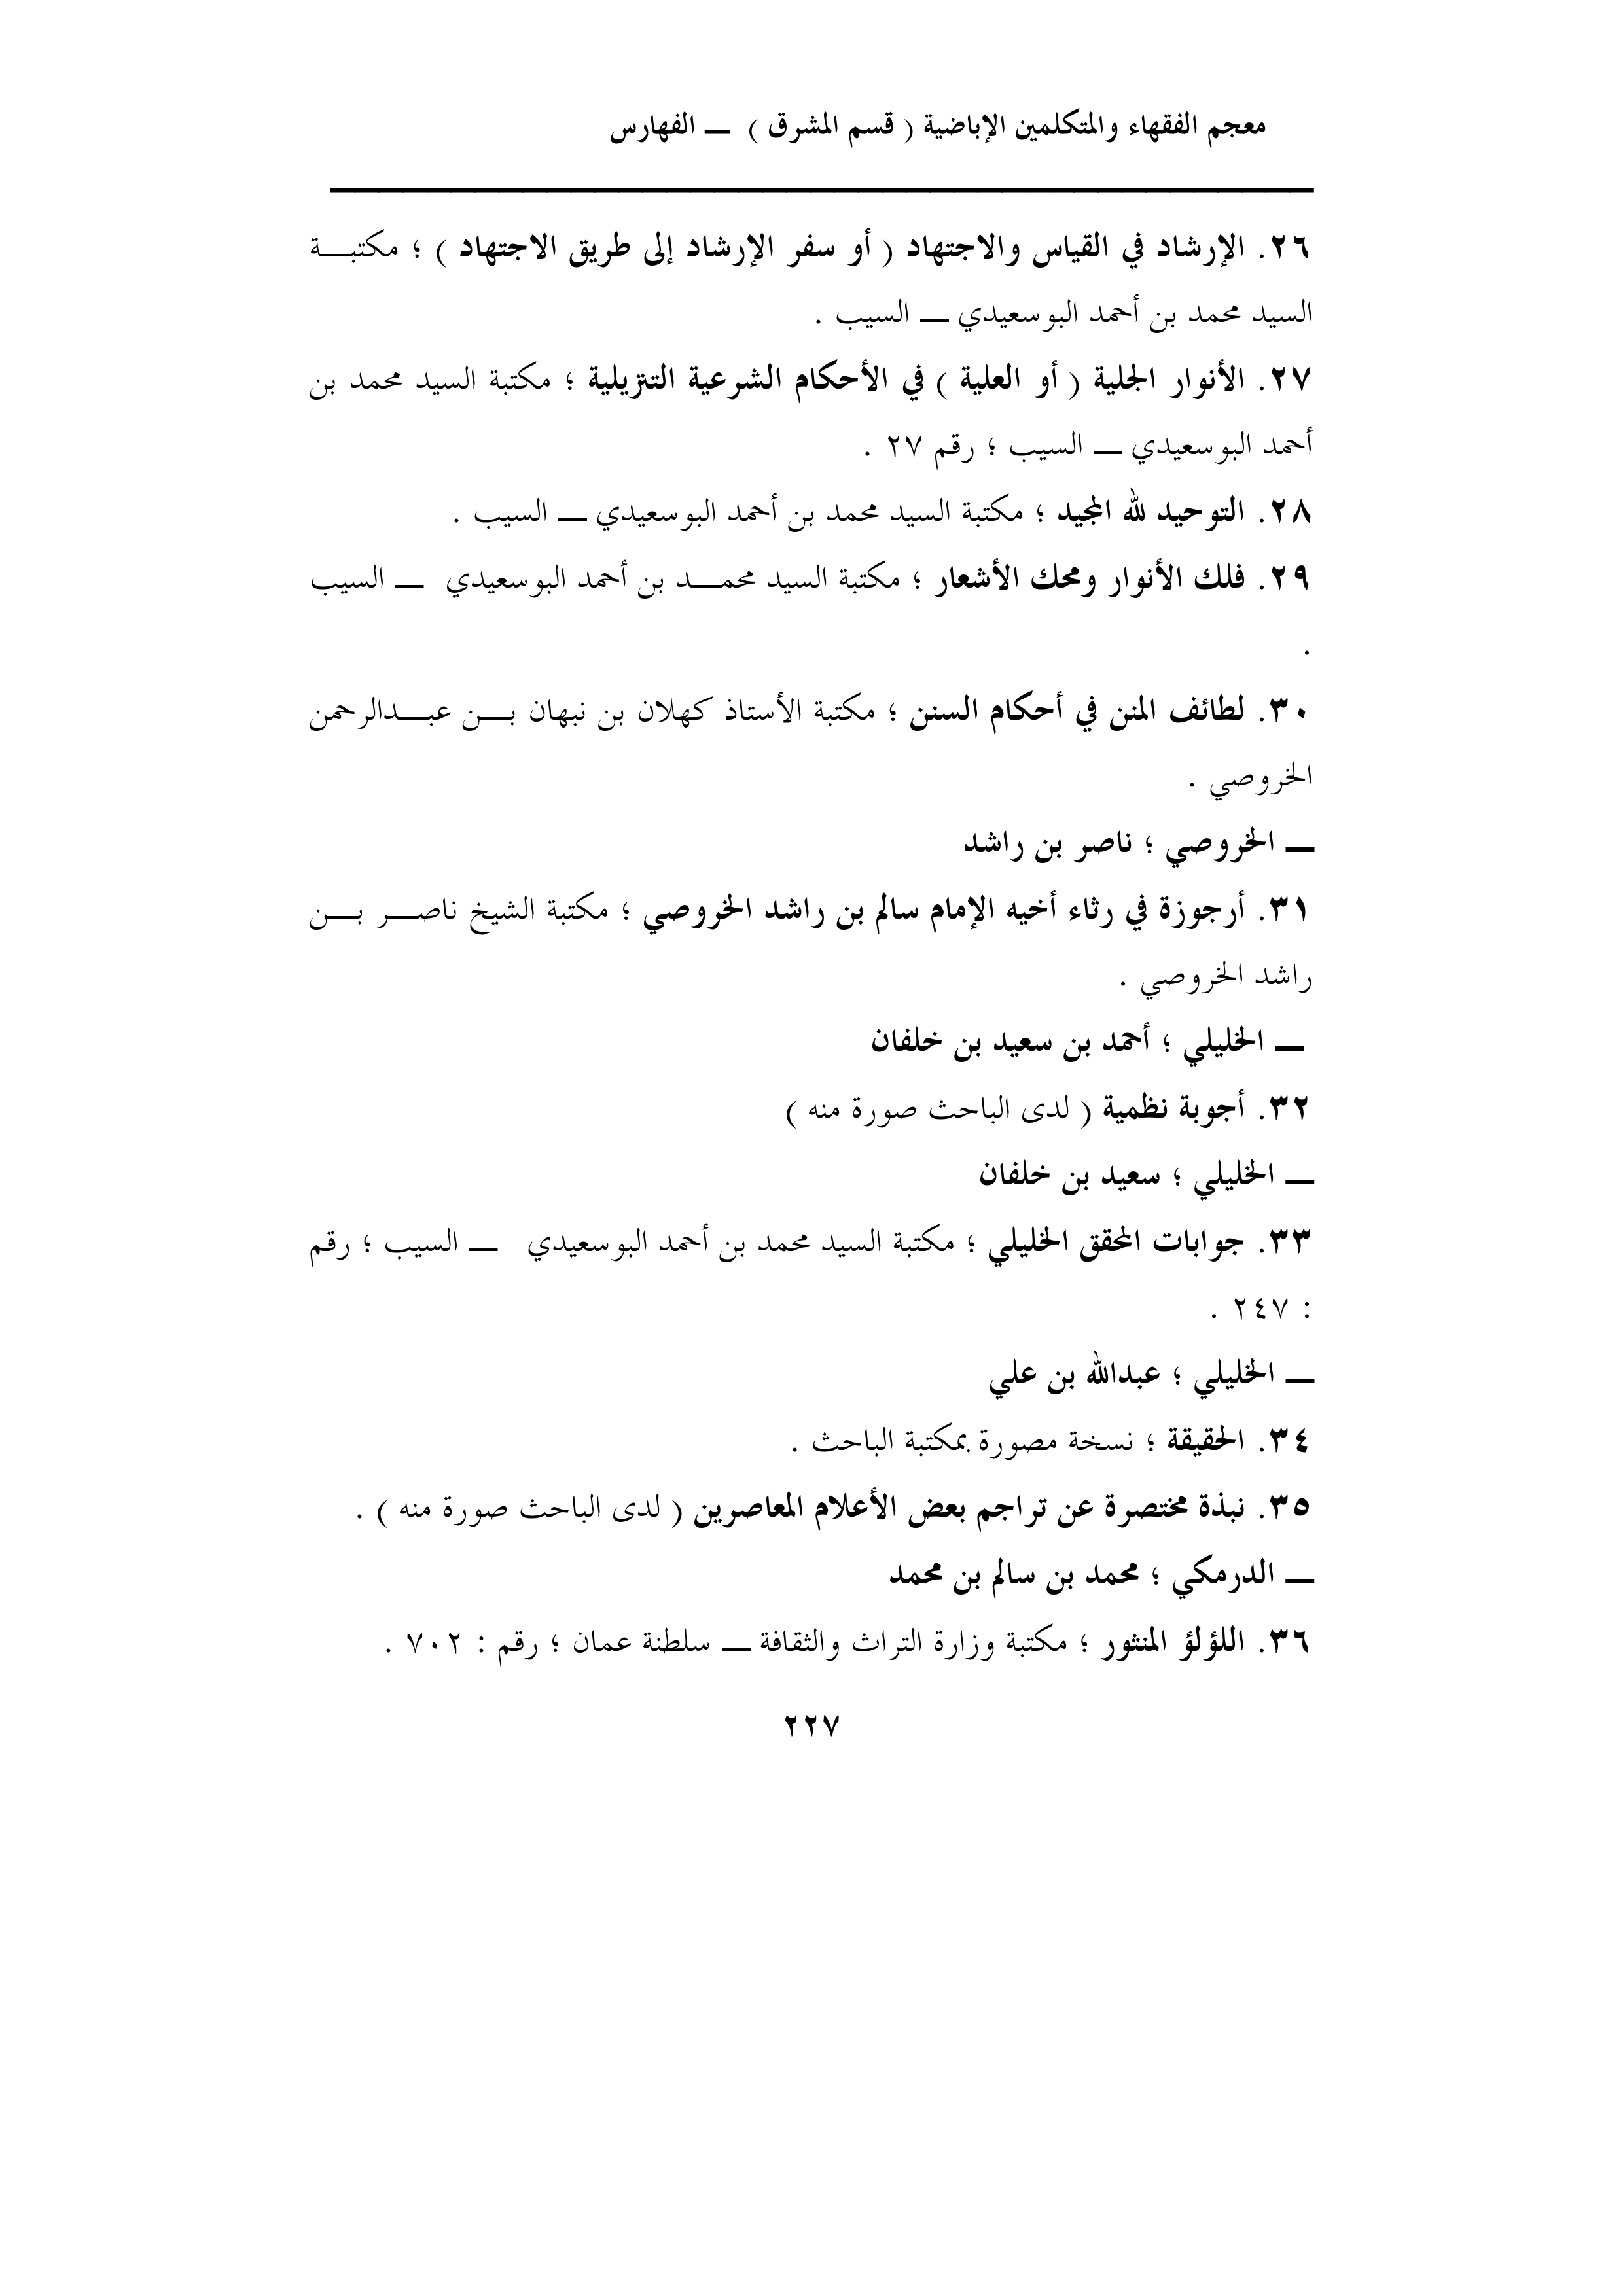 معجم الفقهاء والمتكلمين الإباضية ( قسم المشرق ) ــ الفهارس
٢٦. الإرشاد في القياس والاجتهاد ( أو سفر الإرشاد إلى طريق الاجتهاد ) ؛ مكتبـــة
السيد محمد بن أحمد البوسعيدي ــ السيب .
٢٧. الأنوار الجلية ( أو العلية ) في الأحكام الشرعية التنزيلية ؛ مكتبة السيد محمد بن
أحمد البوسعيدي ــ السيب ؛ رقم ٢٧ .
٢٨. التوحيد لله المجيد ؛ مكتبة السيد محمد بن أحمد البوسعيدي ــ السيب .
٢٩. فلك الأنوار ومحك الأشعار ؛ مكتبة السيد محمـــد بن أحمد البوسعيدي ــ السيب
.
٣٠. لطائف المنن في أحكام السنن ؛ مكتبة الأستاذ كهلان بن نبهان بـــن عبـــدالرحمن
الخروصي .
ــ الخروصي ؛ ناصر بن راشد
٣١. أرجوزة في رثاء أخيه الإمام سالم بن راشد الخروصي ؛ مكتبة الشيخ ناصـــر بـــن
راشد الخروصي .
ــ الخليلي ؛ أحمد بن سعيد بن خلفان
٣٢. أجوبة نظمية ( لدى الباحث صورة منه )
ــ الخليلي ؛ سعيد بن خلفان
٣٣. جوابات المحقق الخليلي ؛ مكتبة السيد محمد بن أحمد البوسعيدي ــ السيب ؛ رقم
: ٢٤٧ .
ــ الخليلي ؛ عبدالله بن علي
٣٤. الحقيقة ؛ نسخة مصورة بمكتبة الباحث .
٣٥. نبذة مختصرة عن تراجم بعض الأعلام المعاصرين ( لدى الباحث صورة منه ) .
ــ الدرمكي ؛ محمد بن سالم بن محمد
٣٦. اللؤلؤ المنثور ؛ مكتبة وزارة التراث والثقافة ــ سلطنة عمان ؛ رقم : ٧٠٢ .
٢٢٧